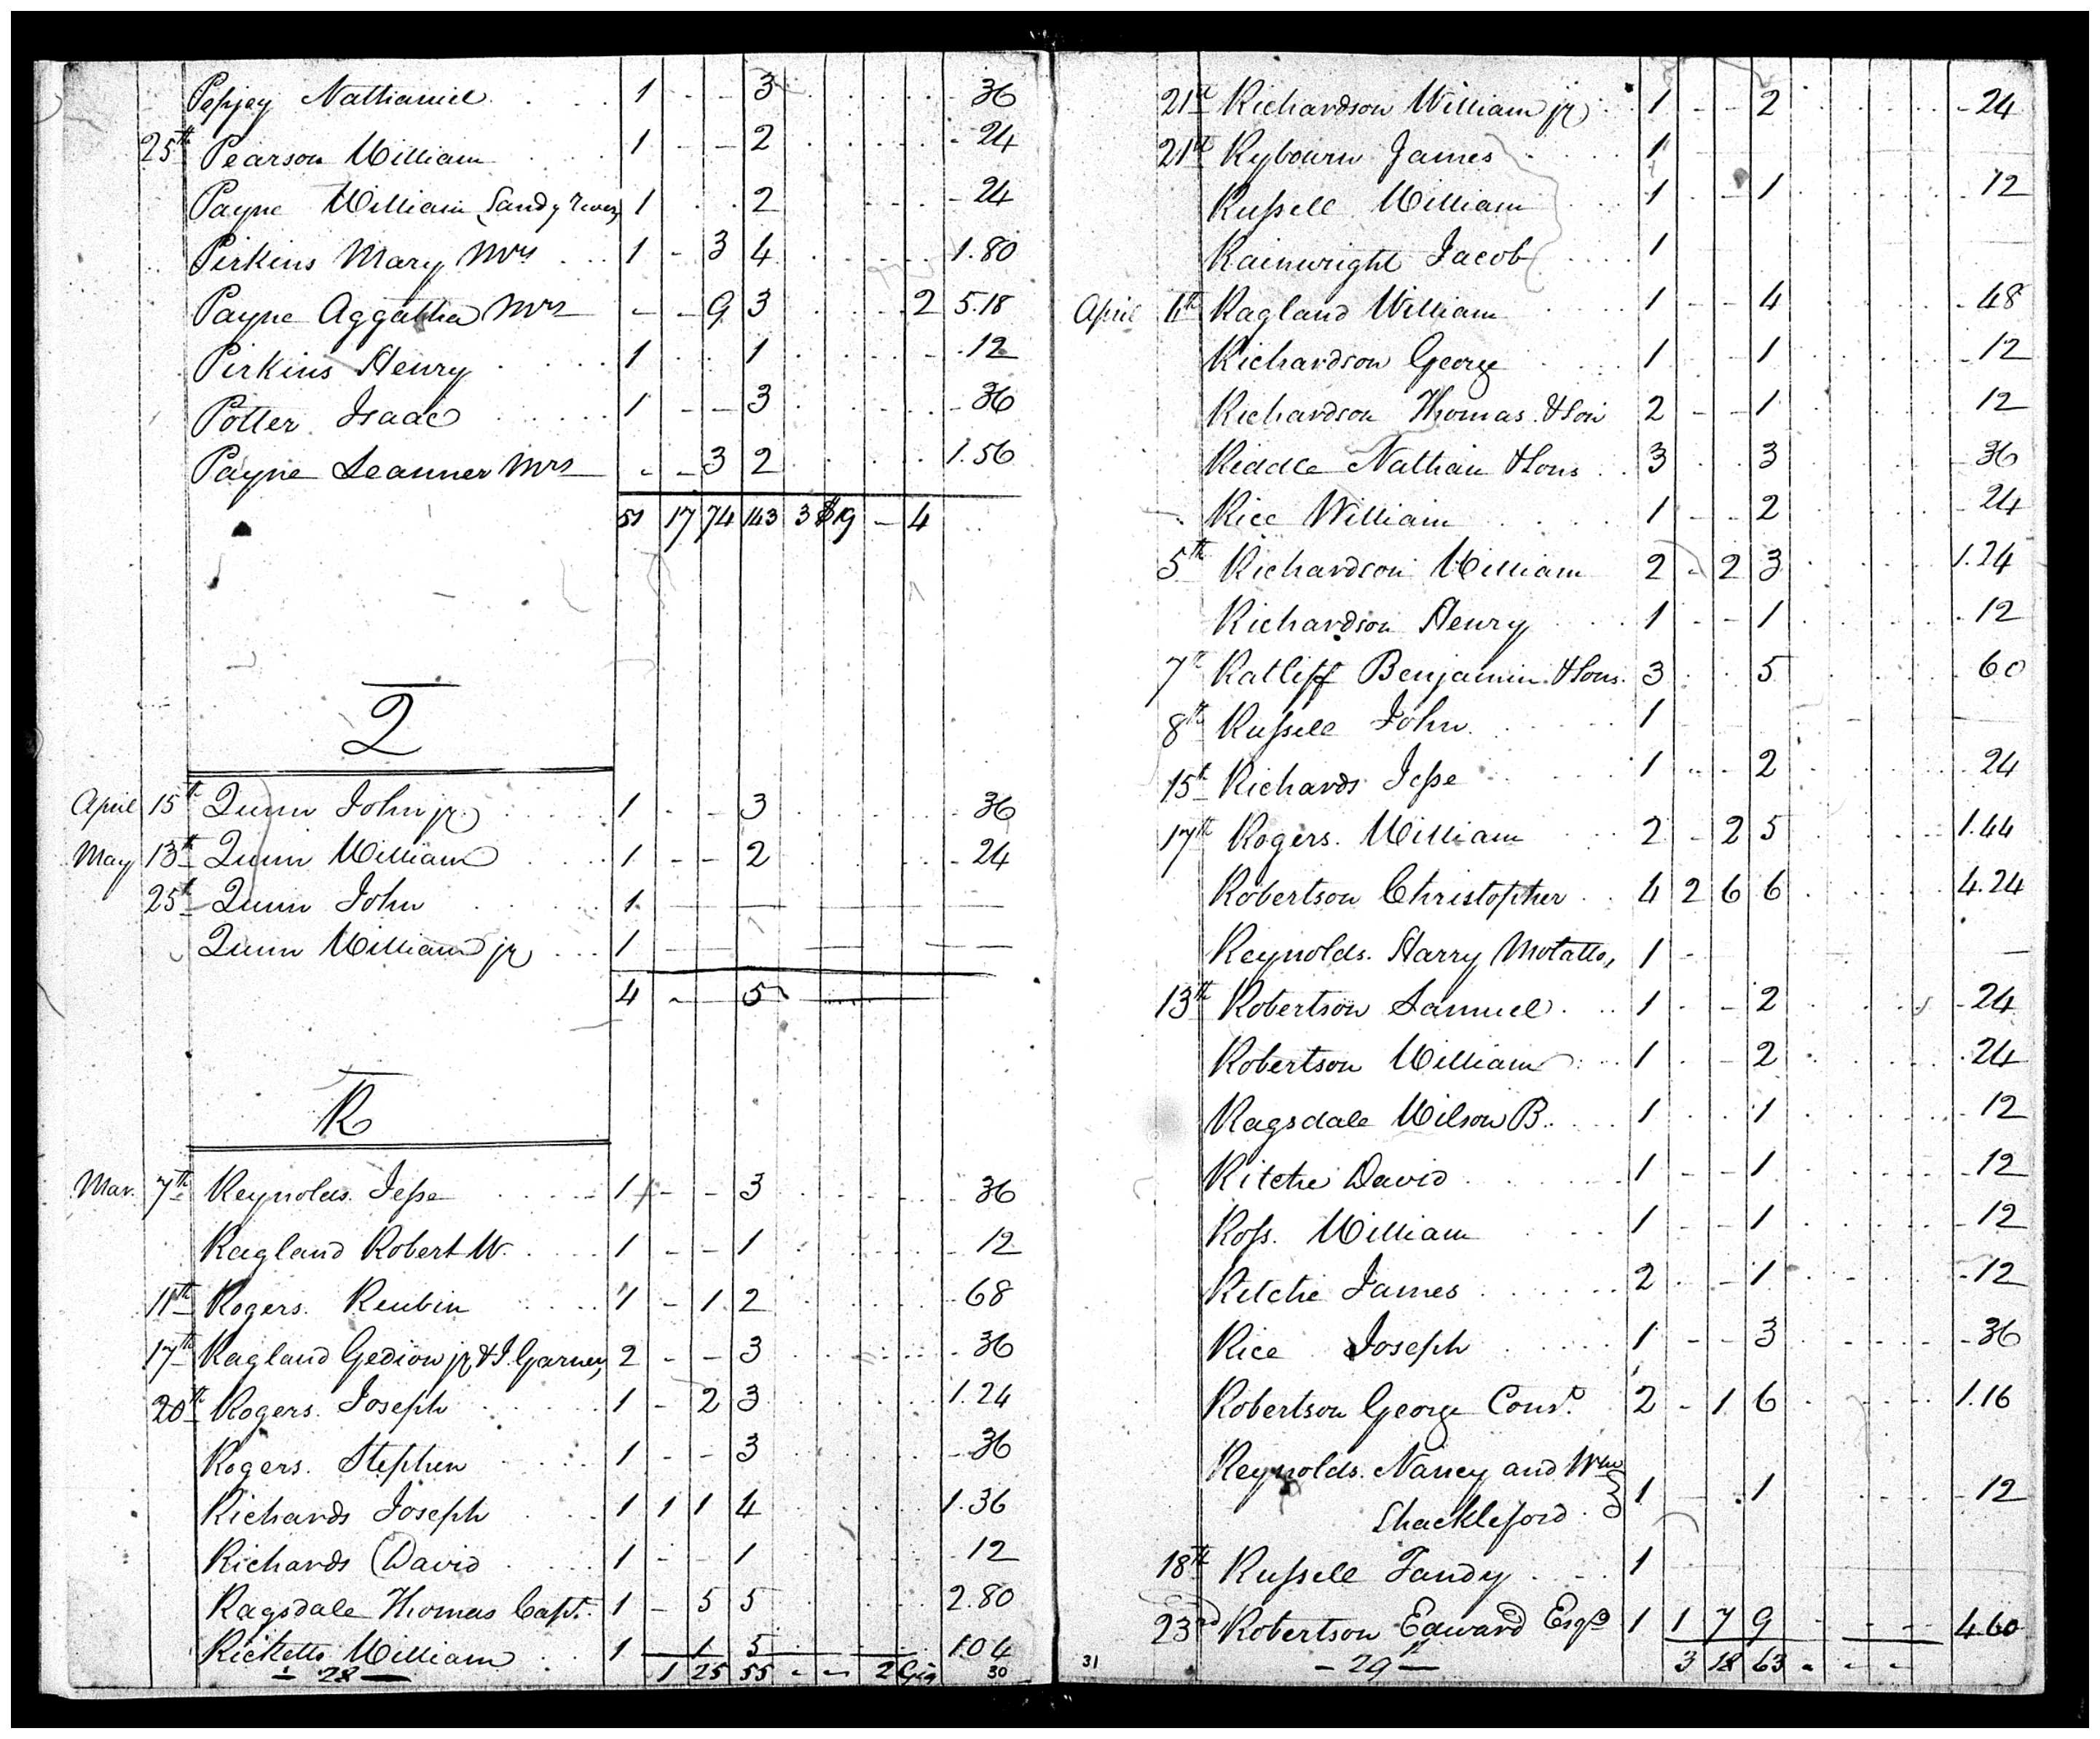 Pessey Nathaniel 1 - - 3 36
25th Pearson William 1 - - 2 - 24
Payne William Sandy river 1 2 - 24
Perkins Mary Mrs 1 - 3 4 1.80
Payne Aggatha Mrs - - 9 3 2 5.18
Perkins Henry 1 1 - 12
Potter Isaac 1 - - 3 - 36
Payne Leanner Mrs - - 3 2 1.56
51 17 74 143 3 $19 - 4
Q
April 15th Quinn John jr. 1 - - 3 - 36
May 13th Quinn William 1 - - 2 - 24
25th Quinn John 1
Quinn William jr 1
4 - 5
R
Mar. 7th Reynolds. Jesse 1 - - 3 - 36
Ragland Robert W. 1 - - 1 - 12
11th Rogers. Reubin 1 - 1 2 - 68
17th Ragland Gedion jr & J. Garner, 2 - - 3 - 36
20th Rogers. Joseph 1 - 2 3 1.24
Rogers. Stephen 1 - - 3 - 36
Richards Joseph 1 1 1 4 1.36
Richards David 1 - - 1 - 12
Ragsdale Thomas Capt. 1 - 5 5 2.80
Ricketts William 1 - 1 5 1.04
- 28 - 1 25 55 - - 2 Gig 30
21st Richardson William jr 1 - - 2 - 24
21st Rybourn James 1
Russell William 1 - 1 - 12
Rainwright Jacob 1
April 4th Ragland William 1 - - 4 - 48
Richardson George 1 - - 1 - 12
Richardson Thomas & Son 2 - - 1 12
Riddle Nathan & Sons 3 3 - 36
Rice William 1 - - 2 - 24
5th Richardson William 2 - 2 3 1.24
Richardson Henry 1 - - 1 - 12
7th Ratliff Benjamin & Sons. 3 5 60
8th Russell John. 1
15th Richards Jesse 1 - - 2 24
17th Rogers. William 2 - 2 5 1.44
Robertson Christopher 4 2 6 6 4.24
Reynolds. Harry Molatto, 1 -
13th Robertson Samuel 1 - - 2 - 24
Robertson William 1 - - 2 24
Ragsdale Wilson B. 1 1 - 12
Ritchie David 1 - - 1 - 12
Ross. William 1 - - 1 - 12
Ritchie James 2 - 1 - 12
Rice Joseph 1 - - 3 - 36
Robertson George Cons. 2 - 1 6 1.16
Reynolds. Nancy and Wm
Shackleford 1 - 1 - 12
18th Russell Tandy 1
23rd Robertson Edward Esqr 1 1 7 9 4.60
31 - 29 - 3 18 63 - - -